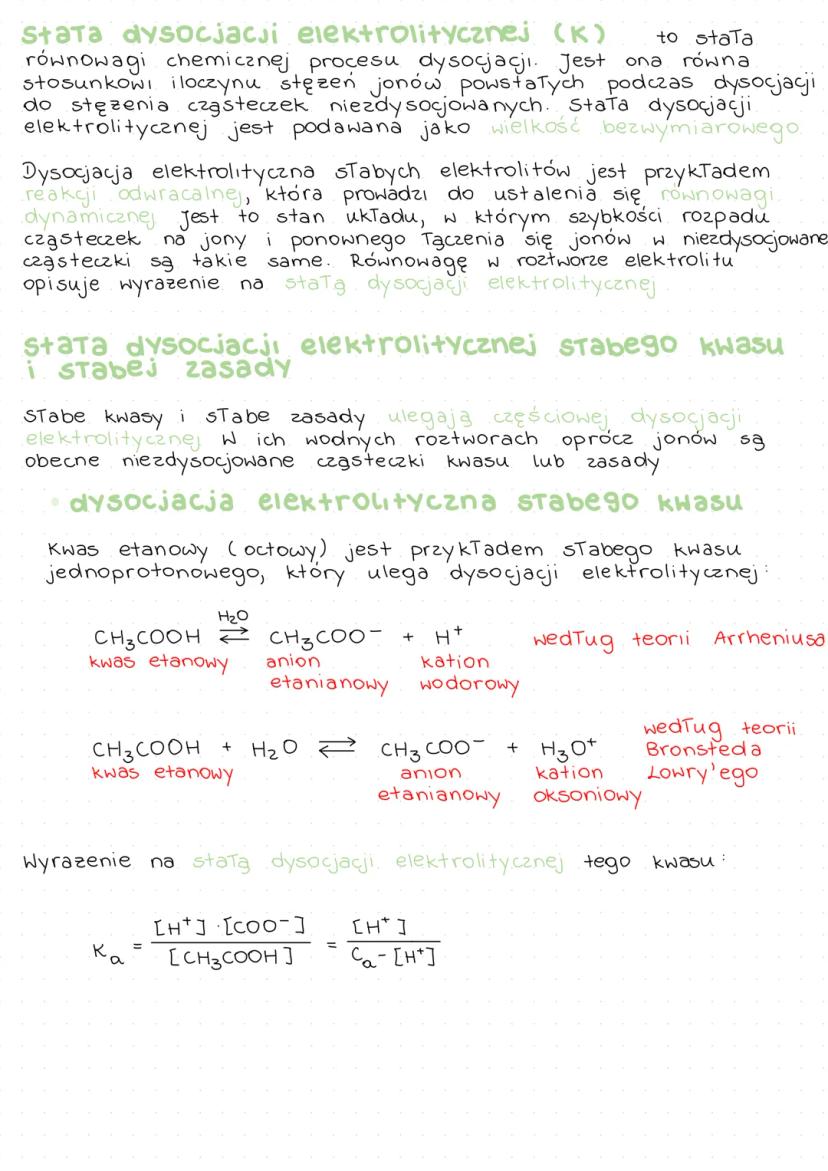 Stała dysocjacji elektrolitycznej (K) to stała
równowagi chemicznej procesu dysocjacji. Jest ona równa
stosunkowi iloczynu stężeń jonów powstałych podczas dysocjacji
do stężenia cząsteczek niezdysocjowanych. Stała dysocjacji
elektrolitycznej jest podawana jako wielkość bezwymiarowego.
Dysocjacja elektrolityczna słabych elektrolitów jest przykładem
reakcji odwracalnej, która prowadzi do ustalenia się równowagi
dynamicznej. Jest to stan układu, w którym szybkości rozpadu
cząsteczek na jony i ponownego łączenia się jonów w niezdysocjowane
cząsteczki są takie same. Równowagę w roztworze elektrolitu
opisuje wyrażenie na stałą dysocjacji elektrolitycznej
Stała dysocjacji elektrolitycznej słabego kwasu
i słabej zasady
Słabe kwasy i słabe zasady ulegają częściowej dysocjacji
elektrolitycznej. W ich wodnych roztworach oprócz jonów są
obecne niezdysocjowane cząsteczki kwasu lub zasady
• dysocjacja elektrolityczna słabego kwasu
Kwas etanowy (octowy) jest przykładem słabego kwasu
jednoprotonowego, który ulega dysocjacji elektrolitycznej:
H₂O
CH₃COOH ⇌ CH₃COO⁻ + H⁺ według teorii Arrheniusa
kwas etanowy anion kation
etanianowy wodorowy
według teorii
CH₃COOH + H₂O ⇌ CH₃COO⁻ + H₃O⁺ Bronsteda
kwas etanowy anion kation Lowry'ego
etanianowy oksoniowy
Wyrażenie na stałą dysocjacji elektrolitycznej tego kwasu:
[H⁺]·[COO⁻] [H⁺]
Kₐ = =
[CH₃COOH] Cₐ-[H⁺]